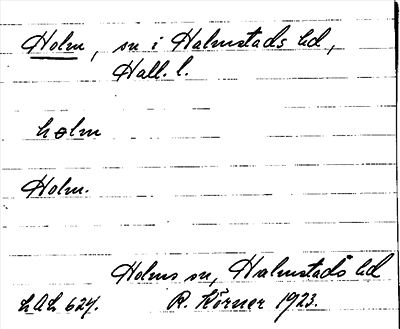 Holm, sn i Halmstads hd,
Hall. l.
holm
Holm.
Holms sn, Halmstads hd
R. Körner 1923.